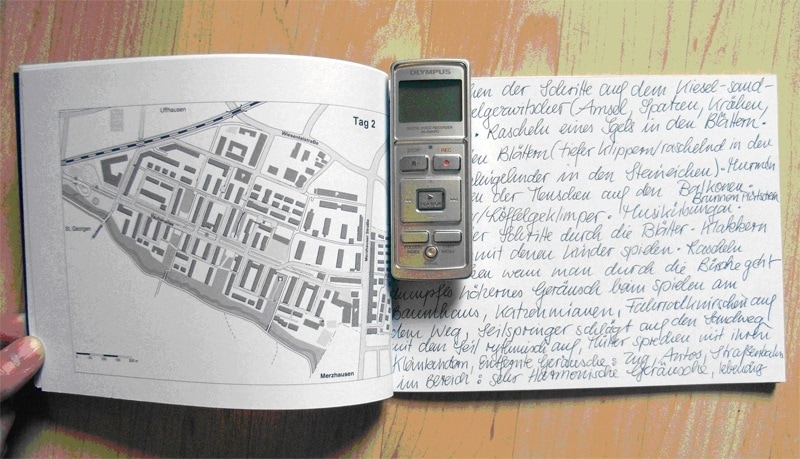 Uffhausen
Tag 2
Wiesentalstraße
St. Georgen
Merzhauser Straße
Merzhausen
OLYMPUS
STOP
REC
der Schritte auf dem Kiesel-sand-
(Amsel, Spatzen, Krähen,
Rascheln eines Igels in den Blättern.
Blättern (tiefer Klippern/raschelnd in den
in den Steineichen). Murmeln
der Menschen auf den Balkonen.
Brunnen Plätschern
/Löffelgeklimper. Musikübungen.
Schritte durch die Blätter. Klackern
mit denen Kinder spielen. Rascheln
wenn man durch die Büsche geht
dumpfes hölzernes Geräusch beim spielen am
Baumhaus, Katzenmiauen, Fahrradknirschen auf
dem Weg, Seilspringer schlägt auf den Sandweg
mit dem Seil rythmisch auf, Mütter sprechen mit ihren
Kleinkindern, Entfernte Geräusche: Zug, Autos, Straßenbahn
im Bereich: Sehr Harmonische Geräusche, lebendig